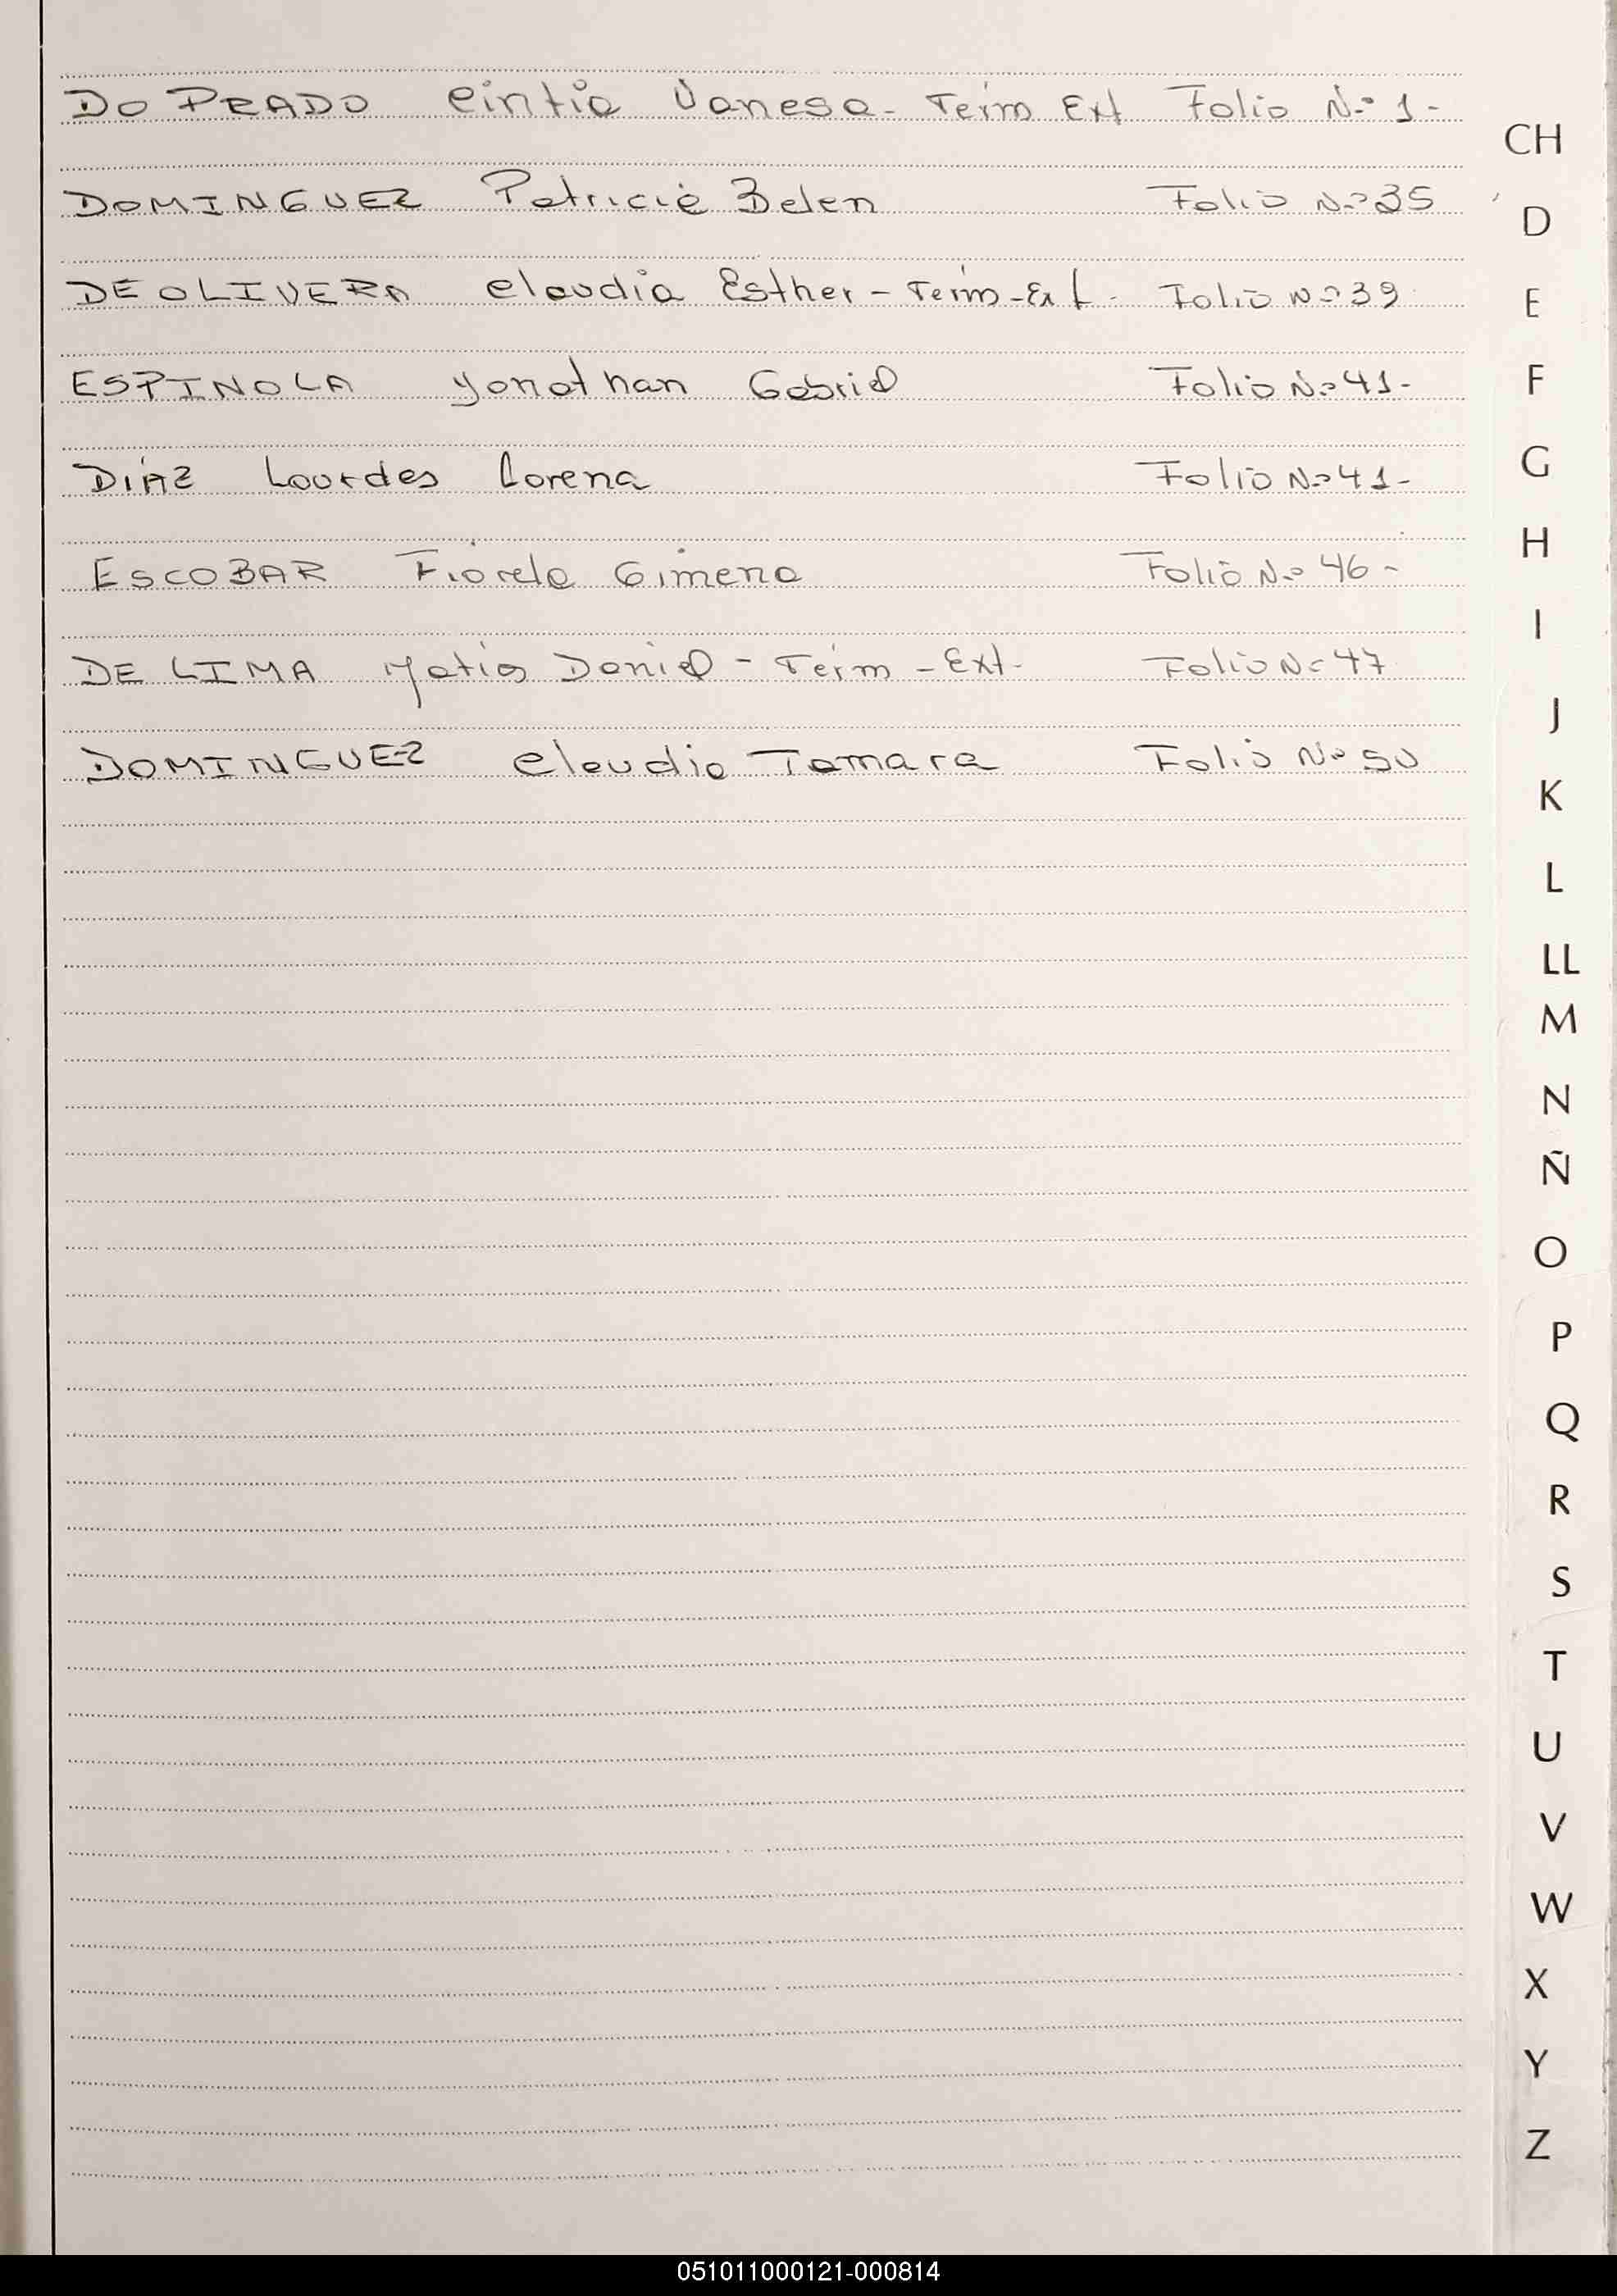 DO PRADO Cintia Vanesa - Term Ext Folio N.° 1 -
DOMINGUEZ Patricia Belen Folio N.° 35
DE OLIVERA Claudia Esther - Term - Ext - Folio N° 39
ESPINOLA Yonathan Gabriel Folio N.° 41 -
DIAZ Lourdes Lorena Folio N.° 41 -
ESCOBAR Fiorela Gimena Folio N.° 46 -
DE LIMA Matias Daniel - Term - Ext - Folio N° 47
DOMINGUEZ Claudia Tamara Folio N° 50
CH
D
E
F
G
H
I
J
K
L
LL
M
N
Ñ
O
P
Q
R
S
T
U
V
W
X
Y
Z
051011000121-000814